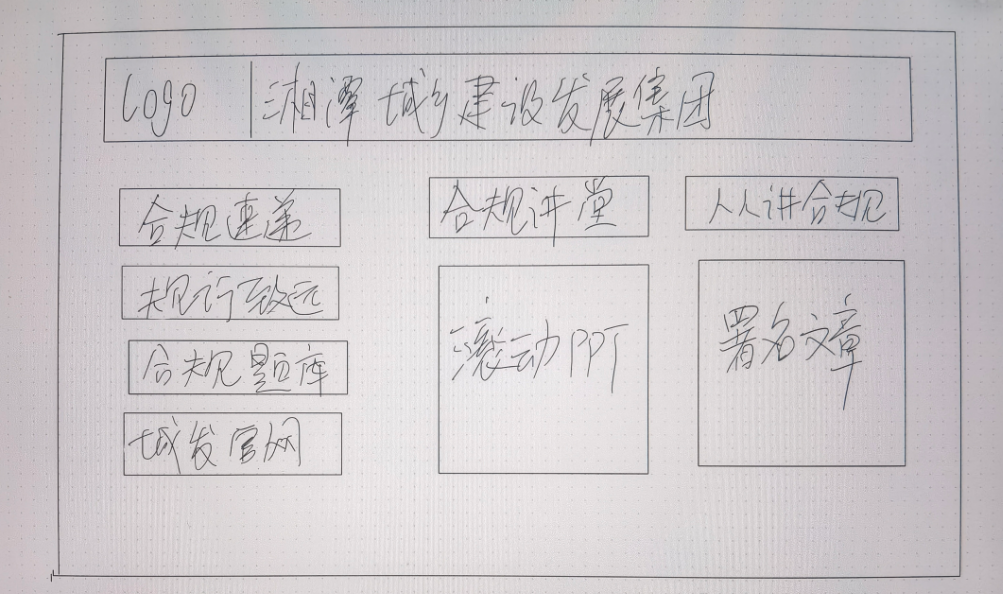 logo 湘潭城乡建设发展集团
合规速递
规行致远
合规题库
城发官网
合规讲堂
滚动PPT
人人讲合规
署名文章